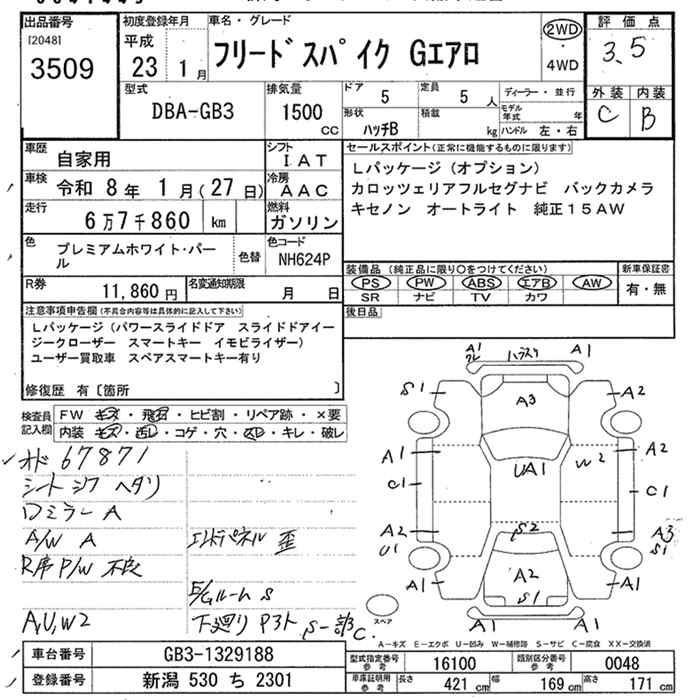 出品番号
[2048]
3509
初度登録年月
平成
23 1月
車名・グレード
フリードスパイク Gエアロ
2WD
・
4WD
評価点
3.5
外装 内装
C B
型式
DBA-GB3
排気量
1500
CC
ドア
5
定員
5 人
形状
ハッチB
積載
kg
ディーラー・並行
モデル年式 年
ハンドル 左・右
車歴
自家用
シフト
IAT
車検
令和 8年 1月(27日)
冷房
AAC
走行
6万7千860 km
燃料
ガソリン
色
プレミアムホワイト・パール
色替
色コード
NH624P
R券
11,860円
名変通知期限
月 日
セールスポイント(正常に機能するものに限ります)
Lパッケージ(オプション)
カロッツェリアフルセグナビ バックカメラ
キセノン オートライト 純正15AW
装備品(純正品に限り○をつけてください)
PS PW ABS エアB AW
SR ナビ TV カワ
新車保証書
有・無
後日品
注意事項申告欄(不具合内容等は具体的に記入して下さい)
Lパッケージ(パワースライドドア スライドドアイー
ジークローザー スマートキー イモビライザー)
ユーザー買取車 スペアスマートキー有り
修復歴 有〔箇所 〕
検査員記入欄
FW キズ・飛石・ヒビ割・リペア跡・×要
内装 キズ・汚レ・コゲ・穴・スレ・キレ・破レ
オド 67871
シートシワ ヘタリ
ロミラー A
A/W A
エンドパネル 歪
R席 P/W 不良
E/Gルーム S
A,U,W2
下廻り P3ト S一部C
A1
ハラスリ
A1
S1
A3
A2
A1
UA1
W2
A2
C1
C1
A2
S2
A3
U1
S1
A1
A2
A1
S1
A1
A1
スペア
A-キズ E-エクボ U-凹み W-補修跡 S-サビ C-腐食 XX-交換済
車台番号
GB3-1329188
登録番号
新潟 530 ち 2301
型式指定番号
参考
16100
類別区分番号
参考
0048
車庫証明用
参考
長さ 421 cm
幅 169 cm
高さ 171 cm